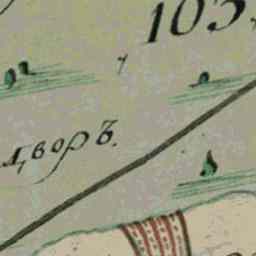 103.
дворъ.